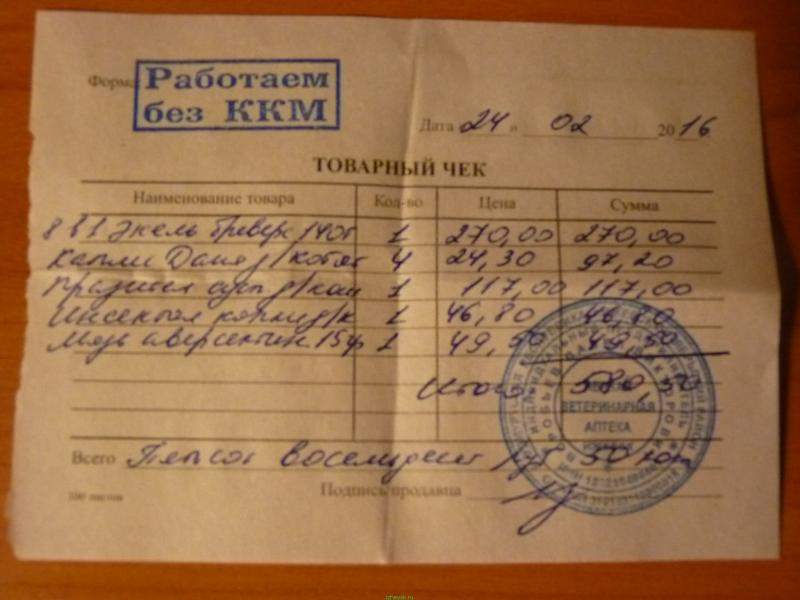 Форма
Работаем
без ККМ
Дата 24 " 02 2016
ТОВАРНЫЙ ЧЕК
Наименование товара Кол-во Цена Сумма
8 в 1 Эксель Бревер 140т 1 270,00 270,00
Капли Дана д/котят 4 24,30 97,20
Празител сусп д/кош 1 117,00 117,00
Инсектал д/к 1 46,80 46,80
Мазь аверсектин. 15гр 1 49,50 49,50
Итого 580,50
ВЕТЕРИНАРНАЯ
АПТЕКА
Всего Пятьсот восемьдесят 50 коп
100 листов Подпись продавца